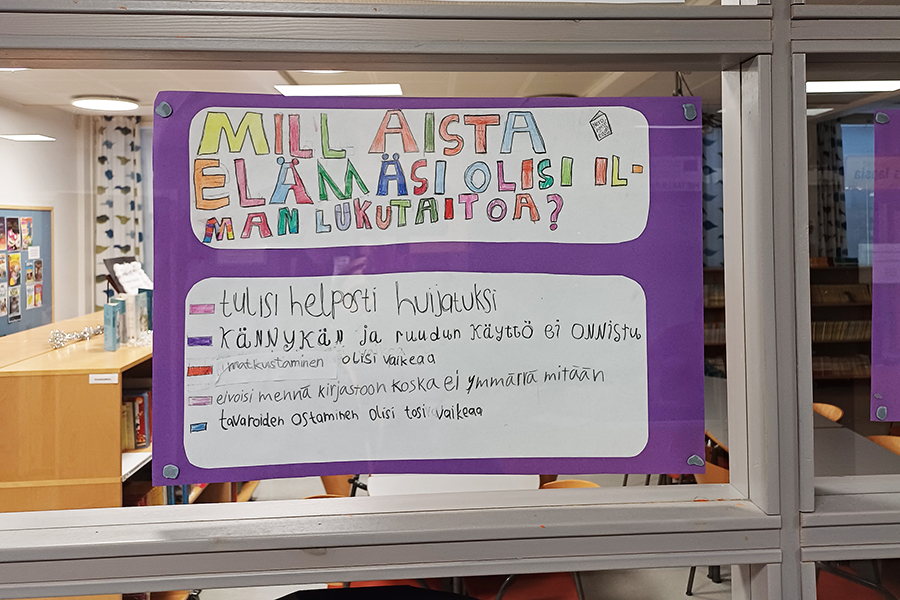 MILLAISTA
ELÄMÄSI OLISI IL-
MAN LUKUTAITOA?
tulisi helposti huijatuksi
KÄNNYKÄN ja ruudun käyttö ei ONNistu
matkustaminen olisi vaikeaa
eivoisi mennä kirjastoon koska ei ymmärrä mitään
tavaroiden ostaminen olisi tosi vaikeaa